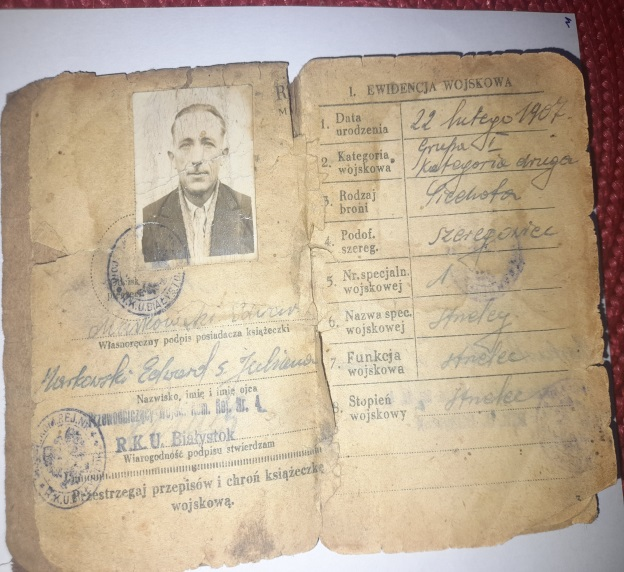 R.K.U. BIAŁYSTOK
Własnoręczny podpis posiadacza książeczki
Markowski Edward s. Juliana
Nazwisko, imię i imię ojca
Przewodniczący Rejon. Kom. Rej. Nr. 4.
R.K.U. Białystok
Wiarogodność podpisu stwierdzam
R.K.U.
Przestrzegaj przepisów i chroń książeczkę
wojskową.
I. EWIDENCJA WOJSKOWA
1. Data urodzenia 22 lutego 1907.
2. Kategoria wojskowa Grupa I kategoria druga
3. Rodzaj broni Piechota
4. Podof. szereg. szeregowiec
5. Nr. specjaln. wojskowej 1
6. Nazwa spec. wojskowej strzelcy
7. Funkcja wojskowa strzelec
8. Stopień wojskowy strzelec